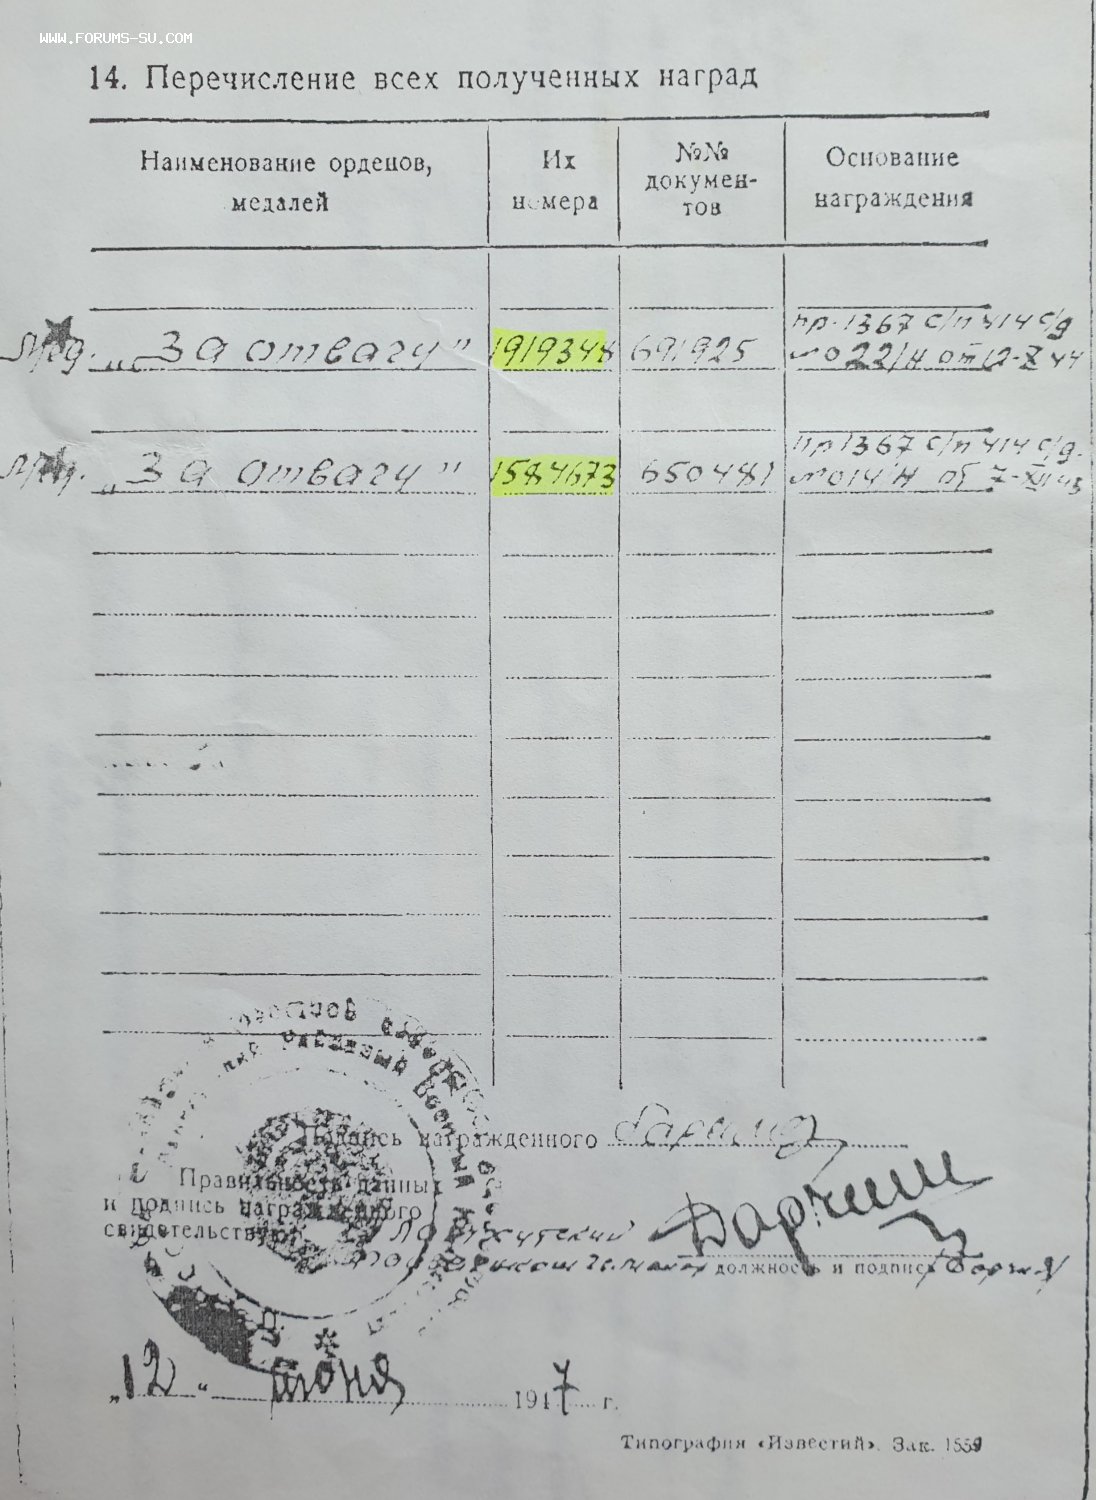 WWW.FORUMS-SU.COM
14. Перечисление всех полученных наград
Наименование орденов, медалей
Их номера
№№ докумен-
тов
Основание награждения
Мед. „За отвагу" 1919344 691925
пр. 1367 с/п 414 с/д
№ 022/н от 12-X 44
Мед. „За отвагу" 1584673 650481
пр 1367 с/п 414 с/д.
№ 014/н от 7-XII 43
Подпись награжденного
Правильность данных
и подпись награжденного
свидетельствую:
должность и подпись
„12" июня 1947 г.
Типография «Известий». Зак. 1559